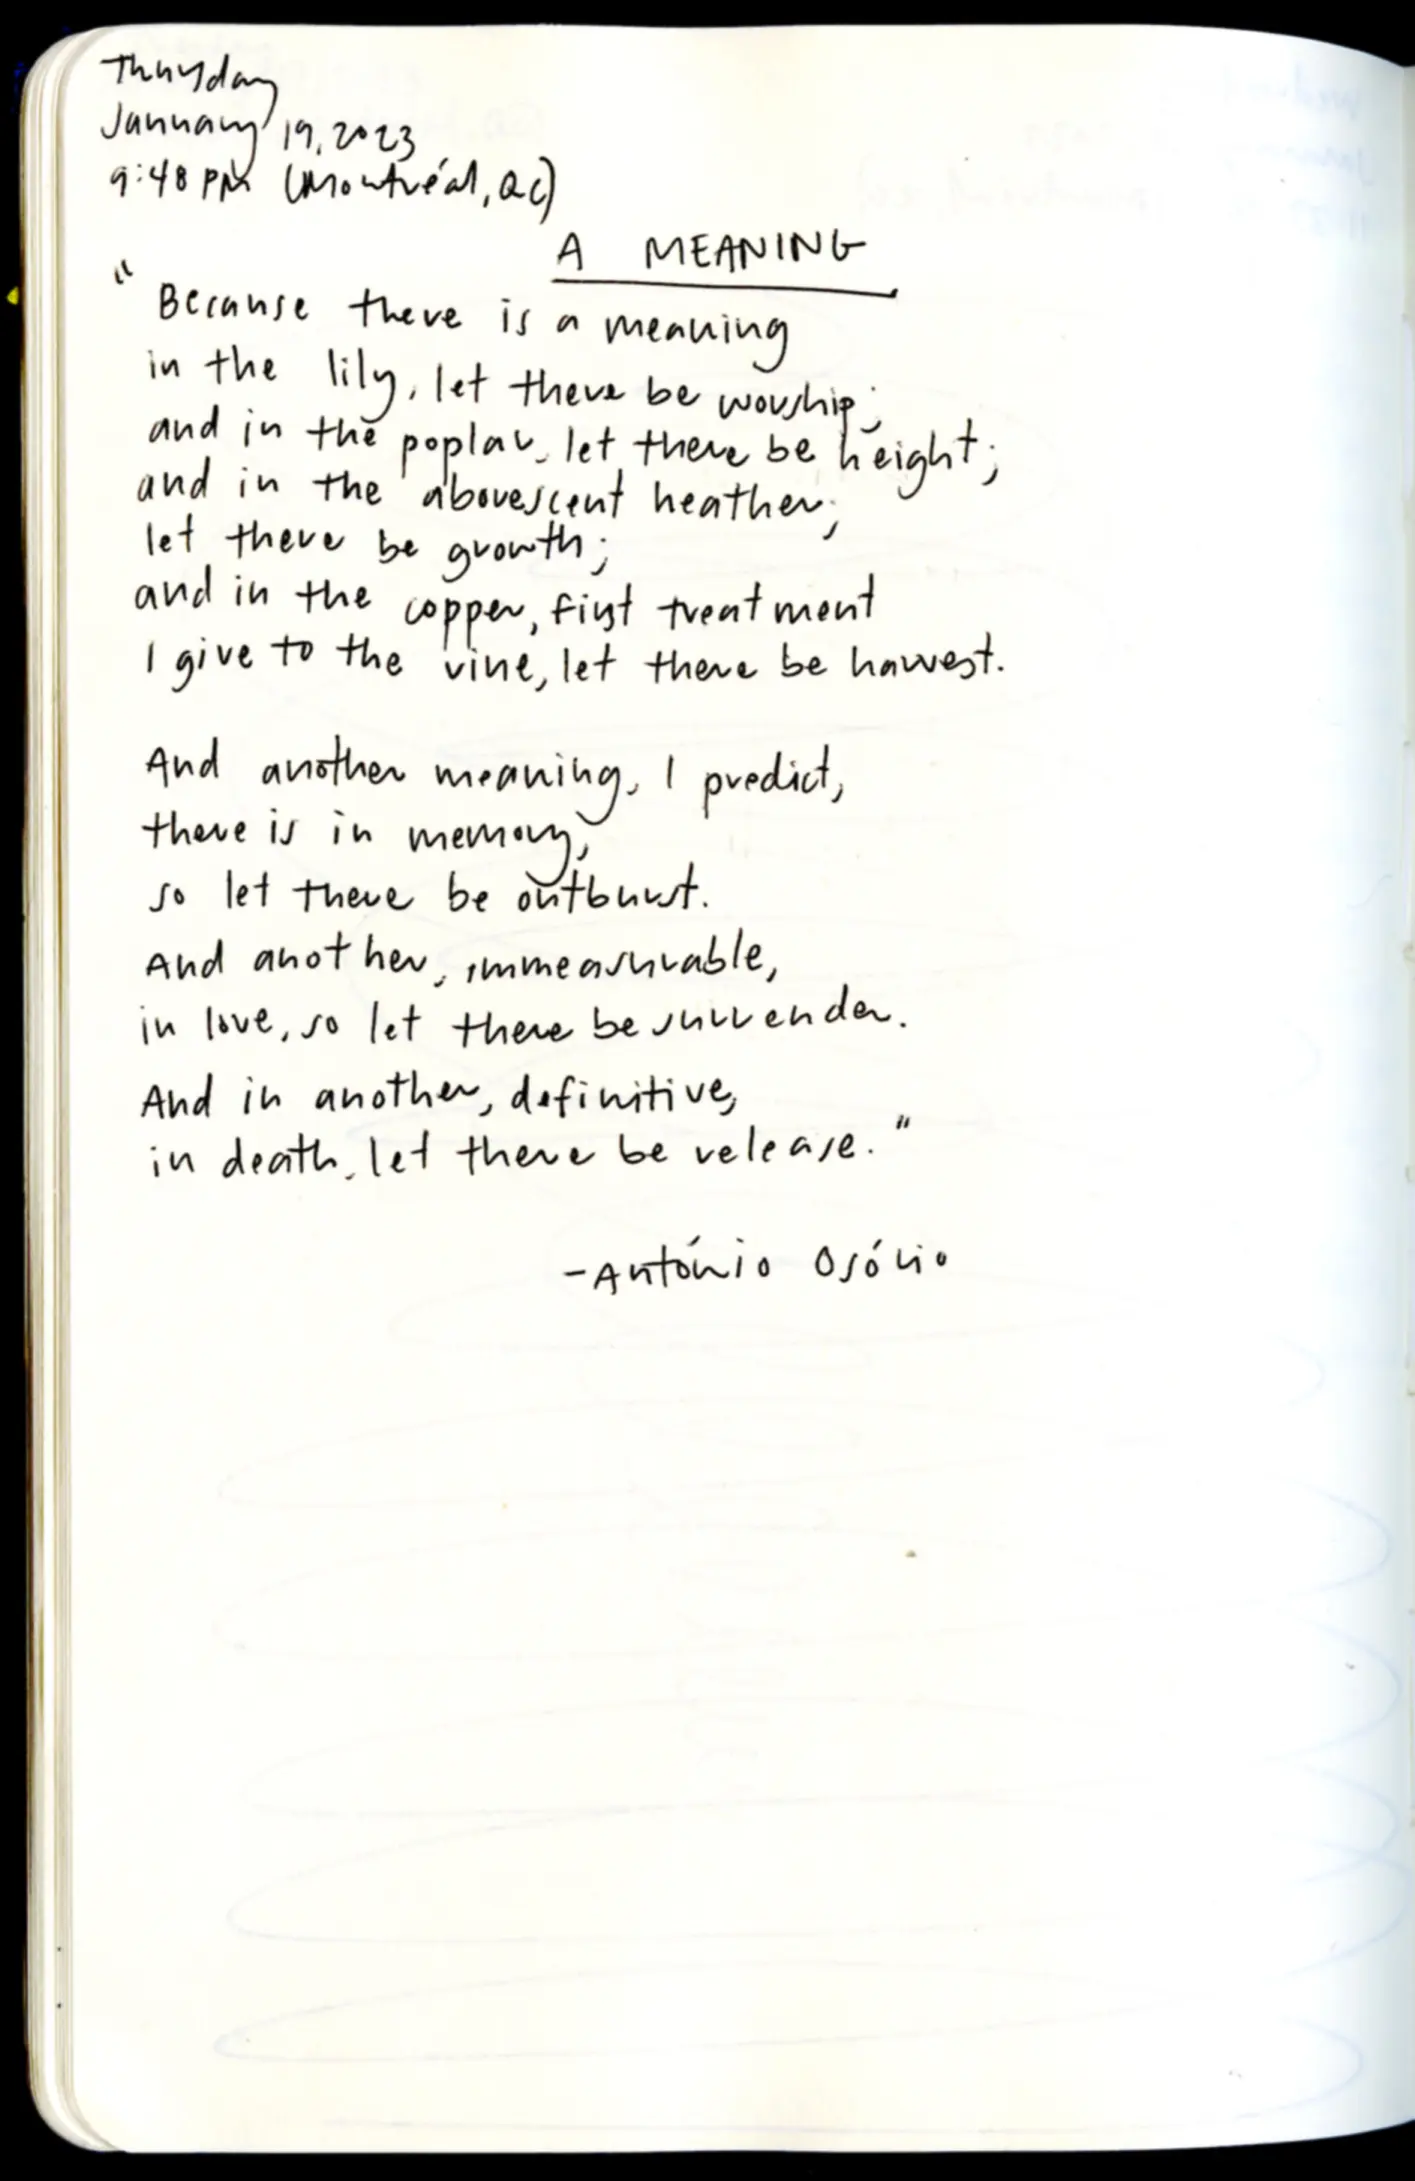 Thursday
January 19, 2023
9:48 PM (Montréal, QC)
A MEANING
"Because there is a meaning
in the lily, let there be worship;
and in the poplar, let there be height;
and in the aborescent heather,
let there be growth;
and in the copper, first treatment
I give to the vine, let there be harvest.
And another meaning, I predict,
there is in memory,
so let there be outburst.
And another, immeasurable,
in love, so let there be surrender.
And in another, definitive,
in death, let there be release."
-António Osório